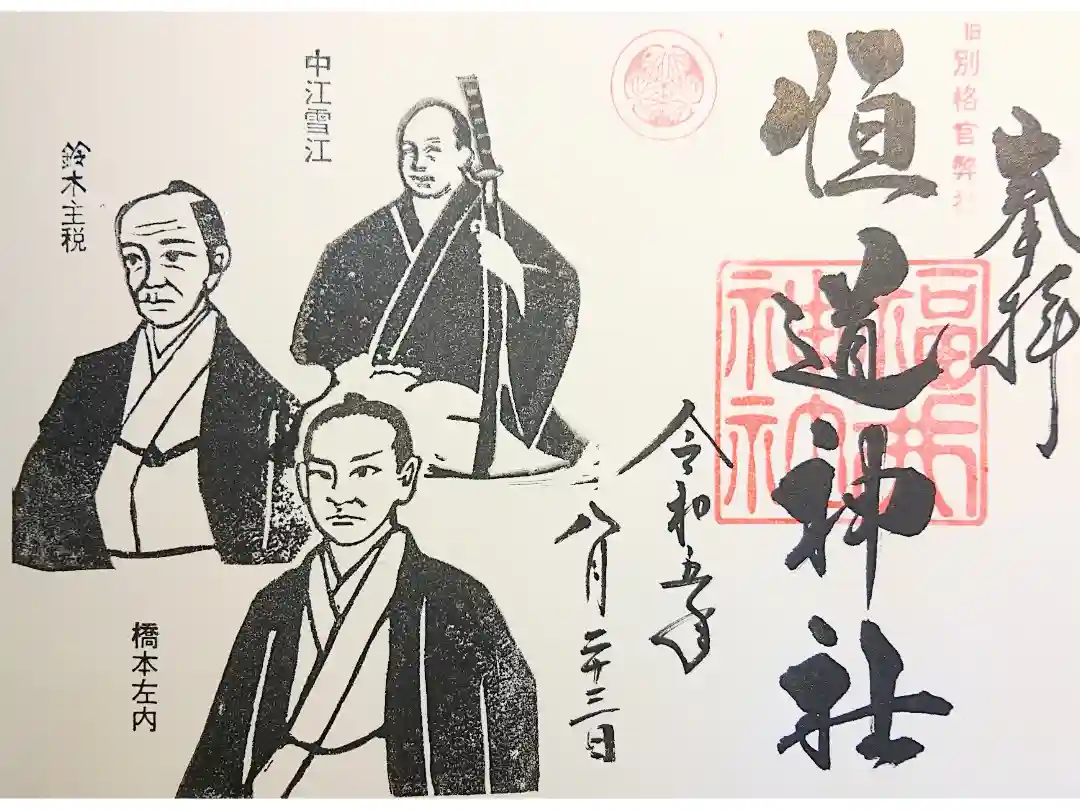 奉拝
旧別格官幣社
恒道神社
福井
神社
令和五年
八月二十三日
中江雪江
鈴木主税
橋本左内